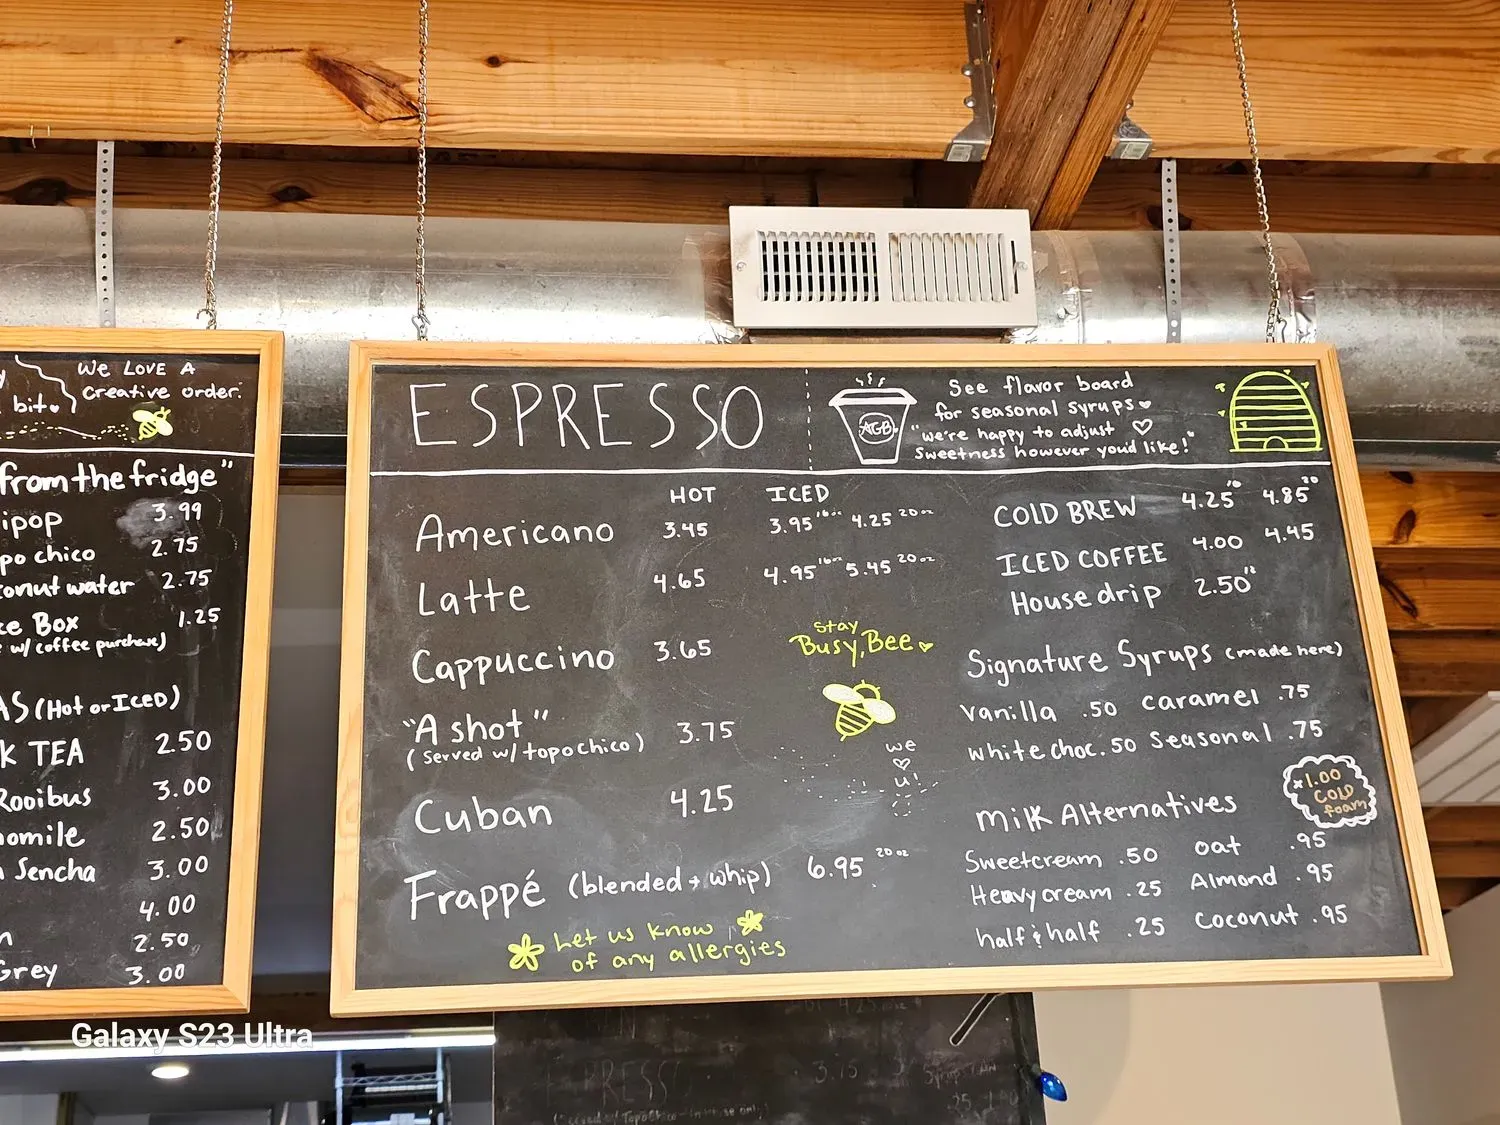 We LOVE A
creative order.
bit
from the fridge"
ipop 3.99
po chico 2.75
onut water 2.75
ce Box 1.25
w/ coffee purchase)
AS (Hot or Iced)
K TEA 2.50
Rooibus 3.00
omile 2.50
Sencha 3.00
4.00
n 2.50
Grey 3.00
ESPRESSO
AGB
See flavor board
for seasonal syrups
"we're happy to adjust
Sweetness however you'd like!"
HOT ICED
Americano 3.45 3.95 16oz 4.25 20oz
Latte 4.65 4.95 16oz 5.45 20oz
Cappuccino 3.65
"A shot" 3.75
(Served w/ topo chico)
Cuban 4.25
Frappé (blended + whip) 6.95 20oz
Let us know
of any allergies
Stay
Busy, Bee
we
u!
COLD BREW 4.25 16 4.85 20
ICED COFFEE 4.00 4.45
House drip 2.50
Signature Syrups (made here)
vanilla .50 caramel .75
white choc .50 Seasonal .75
x1.00
COLD
foam
Milk Alternatives
Sweetcream .50 oat .95
Heavy cream .25 Almond .95
half & half .25 Coconut .95
3.75
Galaxy S23 Ultra